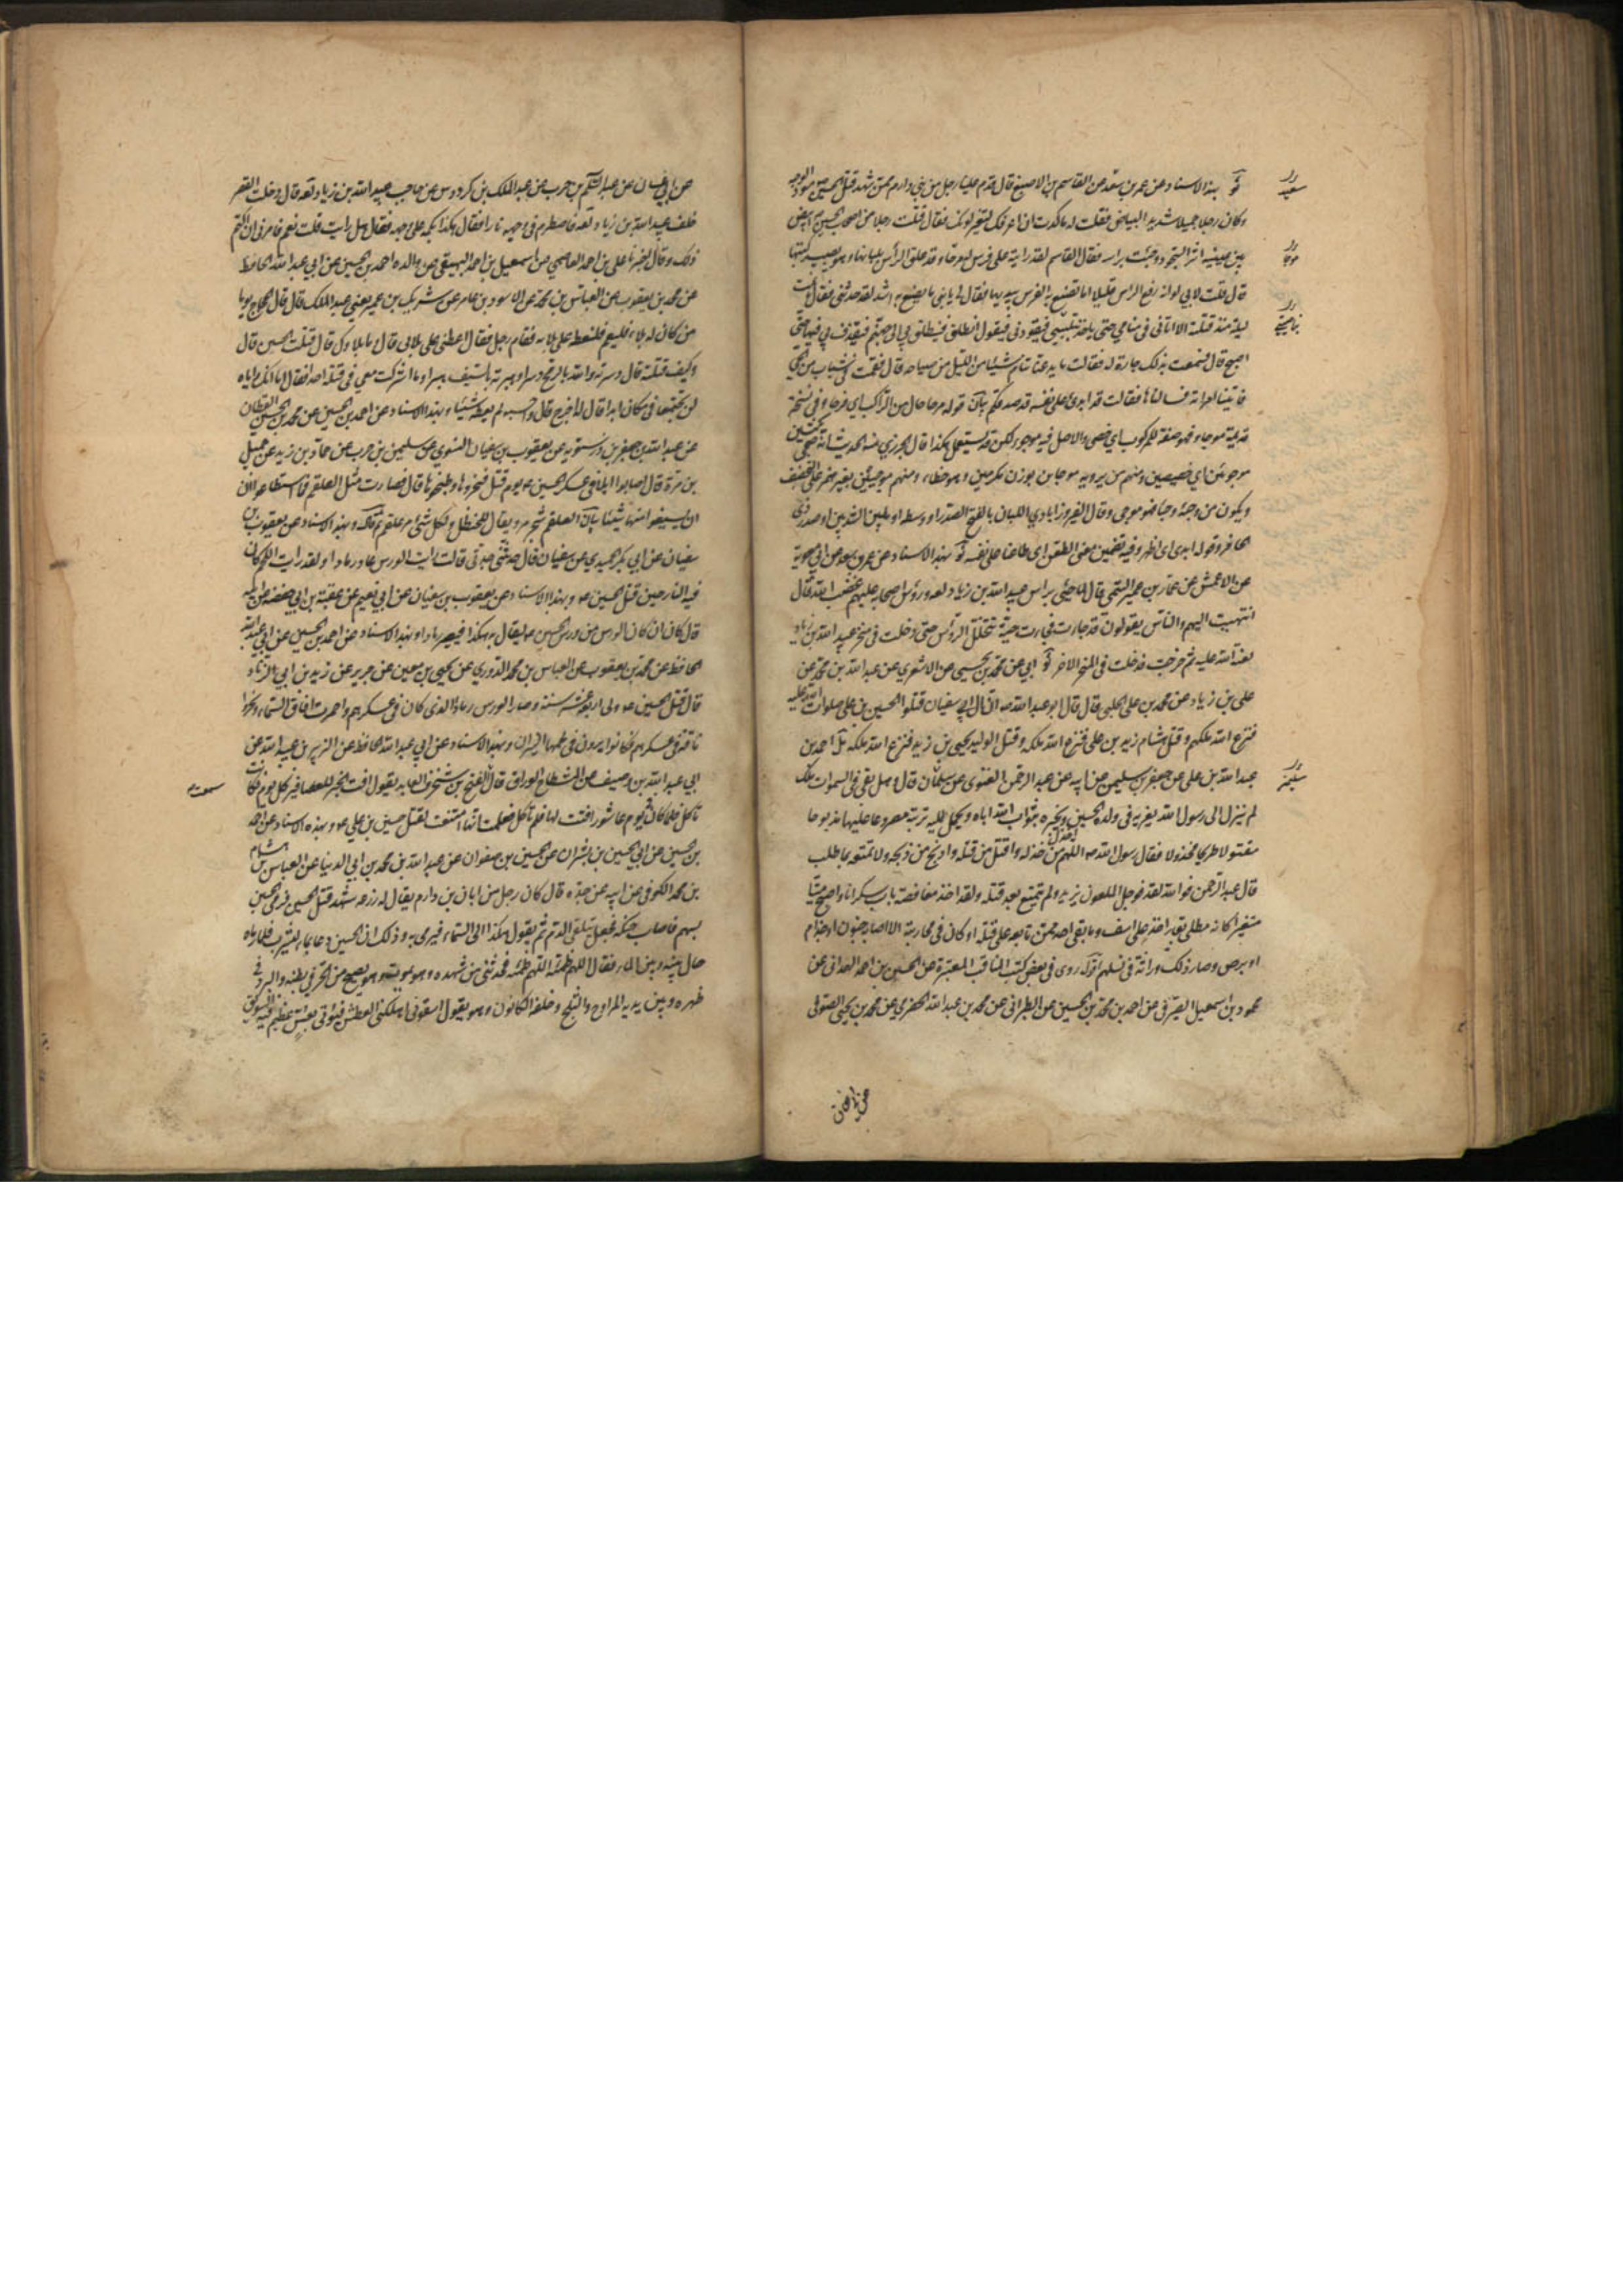 ثو بهذا الاسناد عن عمر بن سعد عن القاسم بن الاصبغ قال قدم علينا رجل من بني دارم ممن شهد قتل الحسين مسود الوجه
وكان رجلا جميلا شديد البياض فقلت له ما كدت ان اعرفك لتغير لونك فقال قتلت رجلا من اصحاب الحسين ابيض
بين عينيه اثر السجود وجئت براسه فقال القاسم لقد رايته على فرس له مرحا وقد علق الرأس بلبانها وهو يصيب ركبتها
قال فقلت لابي لو انه رفع الراس قليلا اما ترى ما تصنع به الفرس بيديها فقال لي يا بني ما يصنع به اشد لقد حدثني فقال ما نمت
ليلة منذ قتلته الا اتاني في منامي حتى ياخذ بتلبيبي فيقودني فيقول انطلق فينطلق بي الى جهنم فيقذف بي فيها حتى
اصبح قال فسمعت بذلك جارة له فقالت ما يدعنا ننام شيئا من الليل من صياحه قال فقمت في شباب من الحي
فاتينا امراته فسالناها فقالت قد ابدى على نفسه قد صدقكم بيان قوله مرحا حال من الراكب اي فرحا وفي نسخة
قديمة موجاء فهو صفة للمركوب اي خصي والاصل فيه موجوء لكن قد يستعمل هكذا قال الجزري منه الحديث انه ضحى بكبشين
موجوئين اي خصيين ومنهم من يرويه موجاين بوزن مكرمين وهو خطاء ومنهم موجيين بغير همز على التخفيف
ويكون من وجئه وجيا فهو موجى وقال الفيروزابادي اللبان بالفتح الصدر او وسطه او بين الثديين او صدر ذي
الحافر وقوله ابدى اي اظهر وفيه تضمين معنى الطعن اي طاعنا على نفسه ثو بهذا الاسناد عن عمر بن سعد عن ابي معوية
عن الاعمش عن عمار بن عمير التيمي قال لما جيء براس عبيد الله بن زياد لعنه ورؤس اصحابه عليهم غضب الله قال
انتهيت اليهم والناس يقولون قد جاءت قد جاءت حية تتخلل الرؤس حتى دخلت في منخر عبيد الله بن زياد
لعنة الله عليه ثم خرجت فدخلت في المنخر الاخر ثو ابي عن محمد بن يحيى عن الاشعري عن عبد الله بن محمد عن
علي بن زياد عن محمد بن علي الحلبي قال قال ابو عبد الله ان آل ابي سفيان قتلوا الحسين بن علي صلوات الله عليه
فنزع الله ملكهم وقتل هشام زيد بن علي فنزع الله ملكه وقتل الوليد يحيى بن زيد فنزع الله ملكه مل احمد بن
عبد الله بن علي عن جعفر بن سليمن عن ابيه عن عبد الرحمن الغنوي عن سلمان قال وهل بقي في السموات ملك
لم ينزل الى رسول الله يعزيه في ولده الحسين ويخبره بثواب الله اياه ويحمل اليه تربته مصروعا عليها مذبوحا
مقتولا طريحا مخذولا فقال رسول الله اللهم اخذل من خذله واقتل من قتله واذبح من ذبحه ولا تمتعه بما طلب
قال عبد الرحمن فو الله لقد عوجل الملعون يزيد ولم يتمتع بعد قتله ولقد اخذ مغافصة بات سكرانا واصبح ميتا
متغيرا كانه مطلي بقير اخذ على اسف وما بقي احد ممن تابعه على قتله او كان في محاربته الا اصابه جنون او جذام
او برص وصار ذلك وراثة في نسلهم اقول روي في بعض كتب المناقب المعتبرة عن الحسين بن احمد الهمداني عن
محمود بن اسمعيل الصيرفي عن احمد بن محمد بن الحسين عن الطبراني عن محمد بن عبد الله الحضرمي عن محمد بن يحيى الصوفي
عن ابي غسان عن عبد السلام بن حرب عن عبد الملك بن كردوس عن حاجب عبيد الله بن زياد لعنه قال دخلت القصر
خلف عبيد الله بن زياد لعنه فاضطرم في وجهه نارا فقال هكذا بكمه على وجهه فقال هل رايت قلت نعم فامرني ان اكتم
ذلك وقال اخبرنا علي بن احمد العاصمي عن اسمعيل بن احمد البيهقي عن والده احمد بن الحسين عن ابي عبد الله الحافظ
عن محمد بن يعقوب عن العباس بن محمد عن الاسود بن عامر عن شريك بن عمير يعني عبد الملك قال قال الحجاج يوما
من كان له بلاء فليقم فلنعطه على بلائه فقام رجل فقال اعطني على بلائي قال وما بلاءوك قال قتلت الحسين قال
وكيف قتلته قال دسرته والله بالرمح دسرا وهبرته بالسيف هبرا وما اشركت معي في قتله احدا فقال اما انك واياه
لن تجتمعا في مكان ابدا قال له اخرج قال واحسبه لم يعطه شيئا وبهذا الاسناد عن احمد بن الحسين عن محمد بن الحسين القطان
عن عبد الله بن جعفر بن درستويه عن يعقوب بن سفيان النسوي عن سليمن بن حرب عن حماد بن زيد عن جميل
بن مرة قال اصابوا ابلا في عسكر الحسين يوم قتل فنحروها وطبخوها قال فصارت مثل العلقم فما استطاعوا ان
ان يسيغوا منها شيئا بيان العلقم شجر مر ويقال للحنظل ولكل شيء مر علقم وبهذا الاسناد عن يعقوب بن
سفيان عن ابي بكر الحميدي عن سفيان قال حدثتني جدتي قالت رايت الورس عاد رمادا ولقد رايت اللحم كان
فيه النار حين قتل الحسين وبهذا الاسناد عن يعقوب بن سفيان عن ابي نعيم عن عقبة بن ابي حفصة عن ابيه
قال كان ان كان الورس من ورس الحسين ليقال به هكذا فيصير رمادا وبهذا الاسناد عن احمد بن الحسين عن ابي عبد الله
الحافظ عن محمد بن يعقوب عن العباس بن محمد الدوري عن يحيى بن معين عن جرير عن زيد بن ابي الزناد
قال قتل الحسين ولي اربع عشرة سنة وصار الورس رمادا الذي كان في عسكرهم واحمرت افاق السماء ونحروا
ناقة في عسكرهم فكانوا يرون في لحمها النيران وبهذا الاسناد عن ابي عبد الله الحافظ عن الزبير بن عبيد الله عن
ابي عبد الله بن وصيف عن المشطاح الوراق قال الفتح بن شخرف العابد يقول افت الخبز للعصافير كل يوم فكانت
تاكل فلما كان يوم عاشورا فتت لها فلم تاكل فعلمت انها امتنعت لقتل حسين بن علي وبهذه الاسناد عن احمد
بن حسين عن ابي الحسين بن بشران عن الحسين بن صفوان عن عبد الله بن محمد بن ابي الدنيا عن العباس بن هشام
بن محمد الكوفي عن ابيه عن جده قال كان رجل من ابان بن دارم يقال له زرعه شهد قتل الحسين فرمى الحسين
بسهم فاصاب حنكه فجعل يتلقى الدم ثم يقول هكذا الى السماء فيرمي به وذلك ان الحسين دعا بماء ليشرب فلما رماه
حال بينه وبين الماء فقال اللهم ظمئه اللهم ظمئه فحدثني من شهده وهو يموت وهو يصيح من الحر في بطنه والبرد في
ظهره وبين يديه المراوح والثلج وخلفه الكانون وهو يقول اسقوني اهلكني العطش فيؤتى بعس عظيم فيه السويق